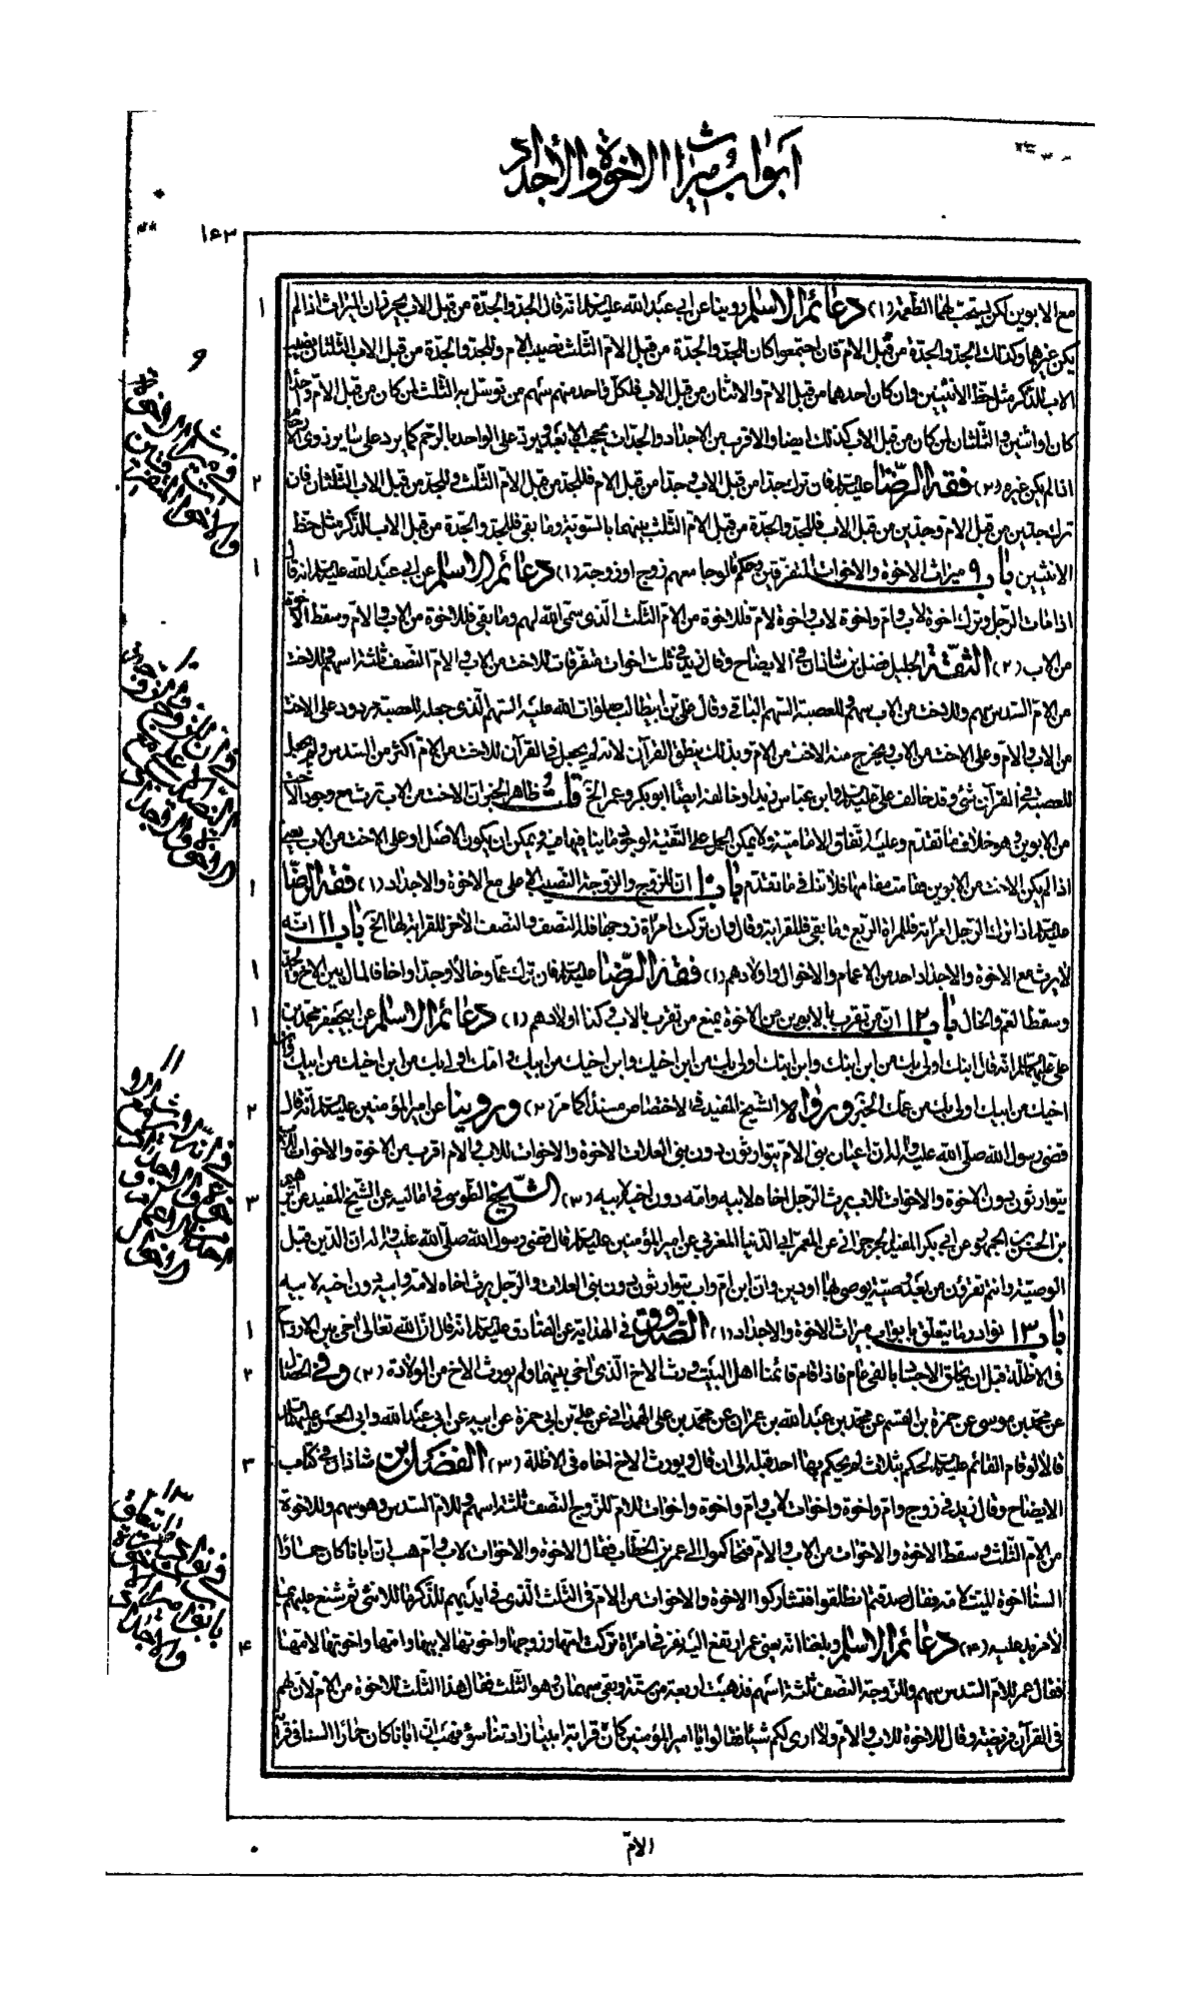 ابواب ميراث الاخوة والأجداد
١٦٣
مع الابوين لكن يستحب لهما الطعمة (١) دعائم الاسلام روينا عن ابي عبد الله عليه السلام انه قال الجد والجدة من قبل الاب يحرزان الميراث اذا لم
يكن غيرهما وكذلك الجد والجدة من قبل الام فان اجتمعوا كان للجد والجدة من قبل الام الثلث نصيب الام وللجد والجدة من قبل الاب الثلثان نصيب
الاب للذكر مثل حظ الانثيين وان كان احدهما من قبل الام والاثنان من قبل الاب فلكل واحد منهم سهم من توسل به الثلث لمن كان من قبل الام واحدا
كان او اثنين والثلثان لمن كان من قبل الاب كذلك ايضا والاقرب من الاجداد والجدات يحجب الابعد ويرد على الواحد بالرحم كما يرد على ساير ذوى الارحام
اذا لم يكن غيره (٢) فقه الرضا عليه السلام فان ترك جدا من قبل الاب وجدا من قبل الام فللجد من قبل الام الثلث وللجد من قبل الاب الثلثان فان
ترك جدين من قبل الام وجدين من قبل الاب فللجد والجدة من قبل الام الثلث بينهما بالسوية وما بقى فللجد والجدة من قبل الاب للذكر مثل حظ
الانثيين باب ٩ ميراث الاخوة والاخوات المتفرقين وحكم ما لو جامعهم زوج او زوجة (١) دعائم الاسلام عن ابي عبد الله عليه السلام انه قال
اذا مات الرجل وترك اخوة لاب وام واخوة لاب واخوة لام فللاخوة من الام الثلث الذى سمى الله لهم وما بقى فللاخوة من الاب والام وسقط الاخوة
من الاب (٢) الثقة الجليل فضل بن شاذان في الايضاح وقال زيد في ثلث اخوات متفرقات للاخت من الاب والام النصف ثلثة اسهم وللاخت
من الام السدس سهم وللاخت من الاب سهم وللعصبة السهم الباقى وقال على بن ابيطالب صلوات الله عليه السهم الذى جعله للعصبة مردود على الاخت
من الاب والام وعلى الاخت من الاب ويخرج منه الاخت من الام وبذلك ينطق القرآن لانه لم يجعل في القرآن للاخت من الام اكثر من السدس ولم يجعل
للعصبة في القرآن شئ وقد خالف على عليه السلام وابن عباس زيدا وخالفه ايضا ابو بكر وعمر الخ قلت ظاهر الخبر ان الاخت من الاب ترث مع وجود الاخت
من الابوين وهو خلاف ما تقدم وعليه اتفاق الامامية ولا يمكن الحمل على التقية لوجود ما ينافيها فيه ويمكن ان يكون الاصل او على الاخت من الاب يعنى
اذا لم يكن الاخت من الابوين فقامت مقامها فلا تنافى ما تقدم باب ١٠ ان للزوج والزوجة النصيب الاعلى مع الاخوة والاجداد (١) فقه الرضا
عليه السلام اذا ترك الرجل امرأة فللمرأة الربع وما بقى فللقرابة وقال وان تركت امرأة زوجها فله النصف والنصف الآخر للقرابة لها الخ باب ١١ انه
لا يرث مع الاخوة والاجداد احد من الاعمام والاخوال واولادهم (١) فقه الرضا عليه السلام فان ترك عما وخالا وجدا واخا فالمال بين الاخ والجد
وسقط العم والخال باب ١٢ ان من تقرب بالابوين من الاخوة يمنع من تقرب بالاب وكذا اولادهم (١) دعائم الاسلام عن ابيجعفر محمد بن
على عليهما السلام انه قال ابنك اولى بك من ابن ابنك وابن ابنك اولى بك من اخيك وابن اخيك من ابيك وامك اولى بك من ابن اخيك من ابيك وابن
اخيك من ابيك اولى بك من عمك الخبر ورواه الشيخ المفيد في الاختصاص مسندا كما مر (٢) وروينا عن امير المؤمنين عليه السلام انه قال
قضى رسول الله صلى الله عليه وآله ان اعيان بنى الام يتوارثون دون بنى العلات الاخوة والاخوات للاب والام اقرب من الاخوة والاخوات للاب
يتوارثون دون الاخوة والاخوات للاب يرث الرجل اخاه لابيه وامه دون اخيه لابيه (٣) الشيخ الطوسى في اماليه عن الشيخ المفيد عن
بن الحسين عن ابي بكر المفيد الجرجرائى عن المعمر ابي الدنيا المغربى عن امير المؤمنين عليه السلام قال قضى رسول الله صلى الله عليه وآله ان الدين قبل
الوصية وانتم تقرؤن من بعد وصية يوصى بها او دين وان ابن ام واب يتوارثون دون بنى العلات والرجل يرث اخاه لامه وابيه دون اخيه لابيه
باب ١٣ نوادر ما يتعلق بابواب ميراث الاخوة والاجداد (١) الصدوق في الهداية عن الصادق عليه السلام انه قال ان الله تعالى آخى بين الارواح
في الاظلة قبل ان يخلق الاجساد بالفى عام فاذا قام قائمنا اهل البيت ورث الاخ الذى آخى بينهما ولم يورث الاخ من الولادة (٢) وفي الخصال
عن محمد بن موسى عن حمزة بن القسم عن محمد بن عبد الله بن عمران عن محمد بن على الهمدانى عن على بن ابي حمزة عن ابيه عن ابي عبد الله وابي الحسن عليهما السلام
قالا لو قام القائم عليه السلام لحكم بثلاث لم يحكم بها احد قبله الى ان قال ويورث الاخ اخاه في الاظلة (٣) الفضل بن شاذان في كتاب
الايضاح وقال زيد في زوج وام واخوة واخوات لاب وام واخوة واخوات للام للزوج النصف ثلثة اسهم وللام السدس وهو سهم وللاخوة
من الام الثلث وسقط الاخوة والاخوات من الاب والام فتحاكموا الى عمر بن الخطاب فقال الاخوة والاخوات لاب وام هب ان ابانا كان حمارا
السنا اخوة لميت لامه فقال صدقتم فانطلقوا فتشاركوا الاخوة والاخوات من الام في الثلث الذى في ايديهم للذكر ما للانثى ثم شنع عليهم بما
لا مزيد عليه (٤) دعائم الاسلام وبلغنا انه يعنى عمر ارتفع اليه نفر في امرأة تركت امها وزوجها واخوتها لابيها وامها واخوتها لامها
فقال عمر للام السدس سهم وللزوج النصف ثلثة اسهم فذهبت اربعة من ستة وبقى سهمان وهو الثلث فقال هذا الثلث للاخوة من الام لان لهم
في القرآن فريضة وقال للاخوة للاب والام ولا ارى لكم شيئا فقالوا يا امير المؤمنين كان قرابة ابينا زادتنا سوء فهب ان ابانا كان حمارا السنا في قرابة
الام
٩
في ميراث الاخوة
والاخوات المتفرقين
١٠
في ان للزوج والزوجة
النصيب الاعلى مع
الاخوة والاجداد
١١
في انه لا يرث مع
الاخوة والاجداد
احد من الاعمام
والاخوال
١٢ ١٣
في نوادر ما يتعلق
بابواب ميراث الاخوة
والاجداد